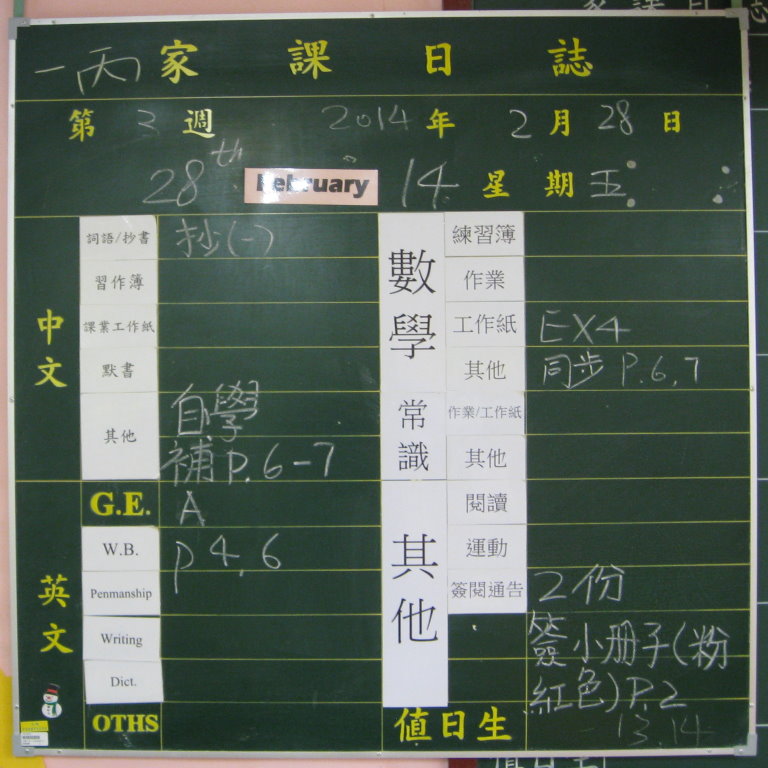 一丙 家課日誌
第 3 週 2014 年 2 月 28 日
28th February 14 星期 五
中文
詞語/抄書 抄(一)
習作簿
課業工作紙
默書
其他 自學
補P.6-7
英文
G.E. A
W.B. P4,6
Penmanship
Writing
Dict.
OTHS
數學
練習簿
作業
工作紙 EX4
其他 同步 P.6,7
常識
作業/工作紙
其他
其他
閱讀
運動
簽閱通告 2份
簽小冊子(粉
紅色)P.2
值日生 13.14